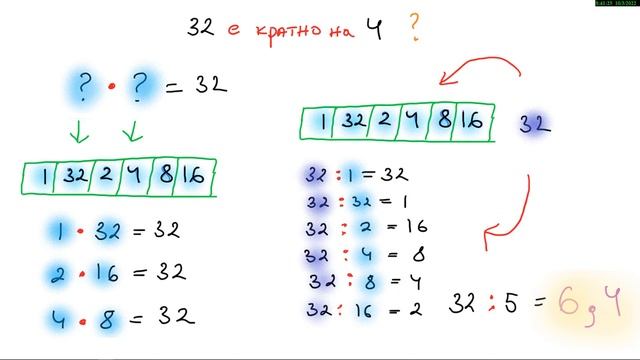 8:41:25 10/3/2022
32 е кратно на 4 ?
? • ? = 32
1 32 2 4 8 16
1 • 32 = 32
2 • 16 = 32
4 • 8 = 32
1 32 2 4 8 16 32
32 : 1 = 32
32 : 32 = 1
32 : 2 = 16
32 : 4 = 8
32 : 8 = 4
32 : 16 = 2
32 : 5 = 6,4